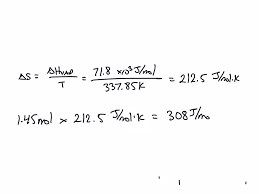 ΔS = ΔHvap / T = 71.8 x10³ J/mol / 337.85K = 212.5 J/mol·K
1.45mol x 212.5 J/mol·K = 308 J/mo